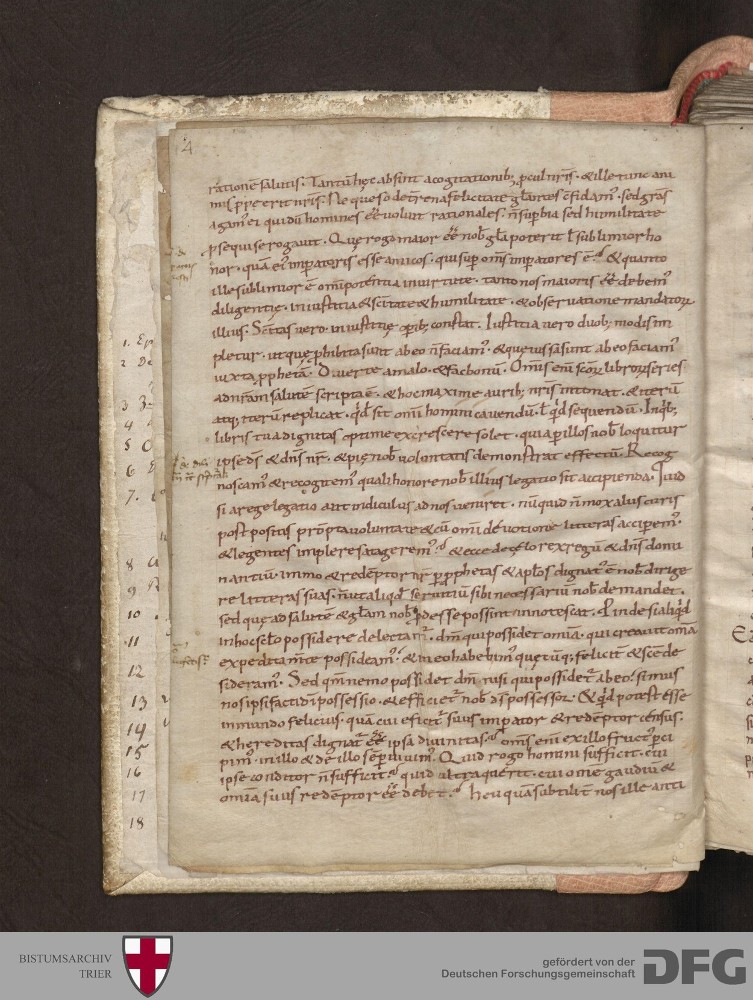 4
rationē salutis. Tantū hęc absint a cogitationib; ꝓcul nr̄is. & ille tunc ani
mis p̄ꝑerit nr̄is. Ne quęso de tr̄ena felicitate gl̄antes c̄fidam᷒. sed gr̄as
agam᷒ ei qui dū homines ee̅ uoluit rationales. n̄ supbia sed humilitate
ꝑsequi se rogauit. Quę rogo maior ee̅ nob̄ gl̄a poterit l̄ sublimior ho
nor. quā ei᷒ imperatoris esse amicos. qui sup om̄s imperatores ē. & quanto
ille sublimior ē om̄ipotentia in uirtute. tanto nos maioris ee̅ debem᷒
diligentię. in iustitia & sc̄itate & humilitate. & obseruatione mandatoꝝ
illius. Sc̄itas uero. in iustitię opib; constat. Iustitia uero duob; modis im
pletur. ut quę ꝓhibita sunt ab eo n̄ faciam᷒. & quę iussa sunt ab eo faciam᷒
iuxta ꝓphetā. Diuerte a malo. & fac bonū. Om̄is eni scōꝝ libroꝝ series
ad nr̄am salutē scripta ē. & hoc maxime aurib; nr̄is intonat. & iterū
atq; iterū replicat. qd̄ sit om̄i homini cauendū. l̄ qd̄ sequendū. In qb;
libris tua dignitas optime excrescere solet. quia ꝑ illos nob̄ loquitur
ipse ds̄ & dn̄s nr̄. & pię nob̄ uoluntatis demonstrat effectū. Recog
noscam᷒ & recogitem᷒ quali honore nob̄ illius legatio sit accipienda. Quid
si a rege legatio aut indiculus ad nos ueniret. nūquid n̄ mox aliis curis
postpositis ꝓmpta uoluntate & cū om̄i deuotione litteras accipem᷒.
& legentes implere satagerem᷒. & ecce de cęlo rex regū & dn̄s domi
nantiū. immo & redēptor nr̄ ꝑ ꝓphetas & apl̄os dignat᷒ ē nob̄ dirige
re litteras suas. n̄ ut aliqd̄ seruitiū sibi necessariū nob̄ demandet.
sed quę ad salutē & gl̄am nob̄ ꝓdesse possint innotescat. Proinde si aliqd̄
in hoc sc̄lo possidere delectam᷒. dm̄ qui possidet om̄ia. qui creauit om̄ia
expedita m̄te possideam᷒. & in eo habebim᷒ quęcūq; felicit̄ & sc̄e de
sideram᷒. Sed qm̄ nemo possidet dm̄ nisi qui possidet᷒ ab eo. simus
nos ipsi factid̄ possessio. & efficiet᷒ nob̄ ds̄ possessor. & qd̄ potest esse
in mundo felicius. quā cui efficit᷒ suus imꝑator & redēptor census.
& hereditas dignat᷒ ee̅ ipsa diuinitas. om̄s eni ex illo fruct᷒ ꝑci
pim᷒. in illo & de illo semp uiuim᷒. Quid rogo homini sufficit. cui
ipse conditor n̄ sufficit. quid ultra querit. cui om̄e gaudiū &
om̄ia suus redēptor ee̅ debet. Heu quā subtilit̄ nos ille anti
1. Ep
2
3
4
5 O
6
7.
8
9
10
11
12
13
14
15
16
17
18
BISTUMSARCHIV
TRIER
gefördert von der
Deutschen Forschungsgemeinschaft
DFG